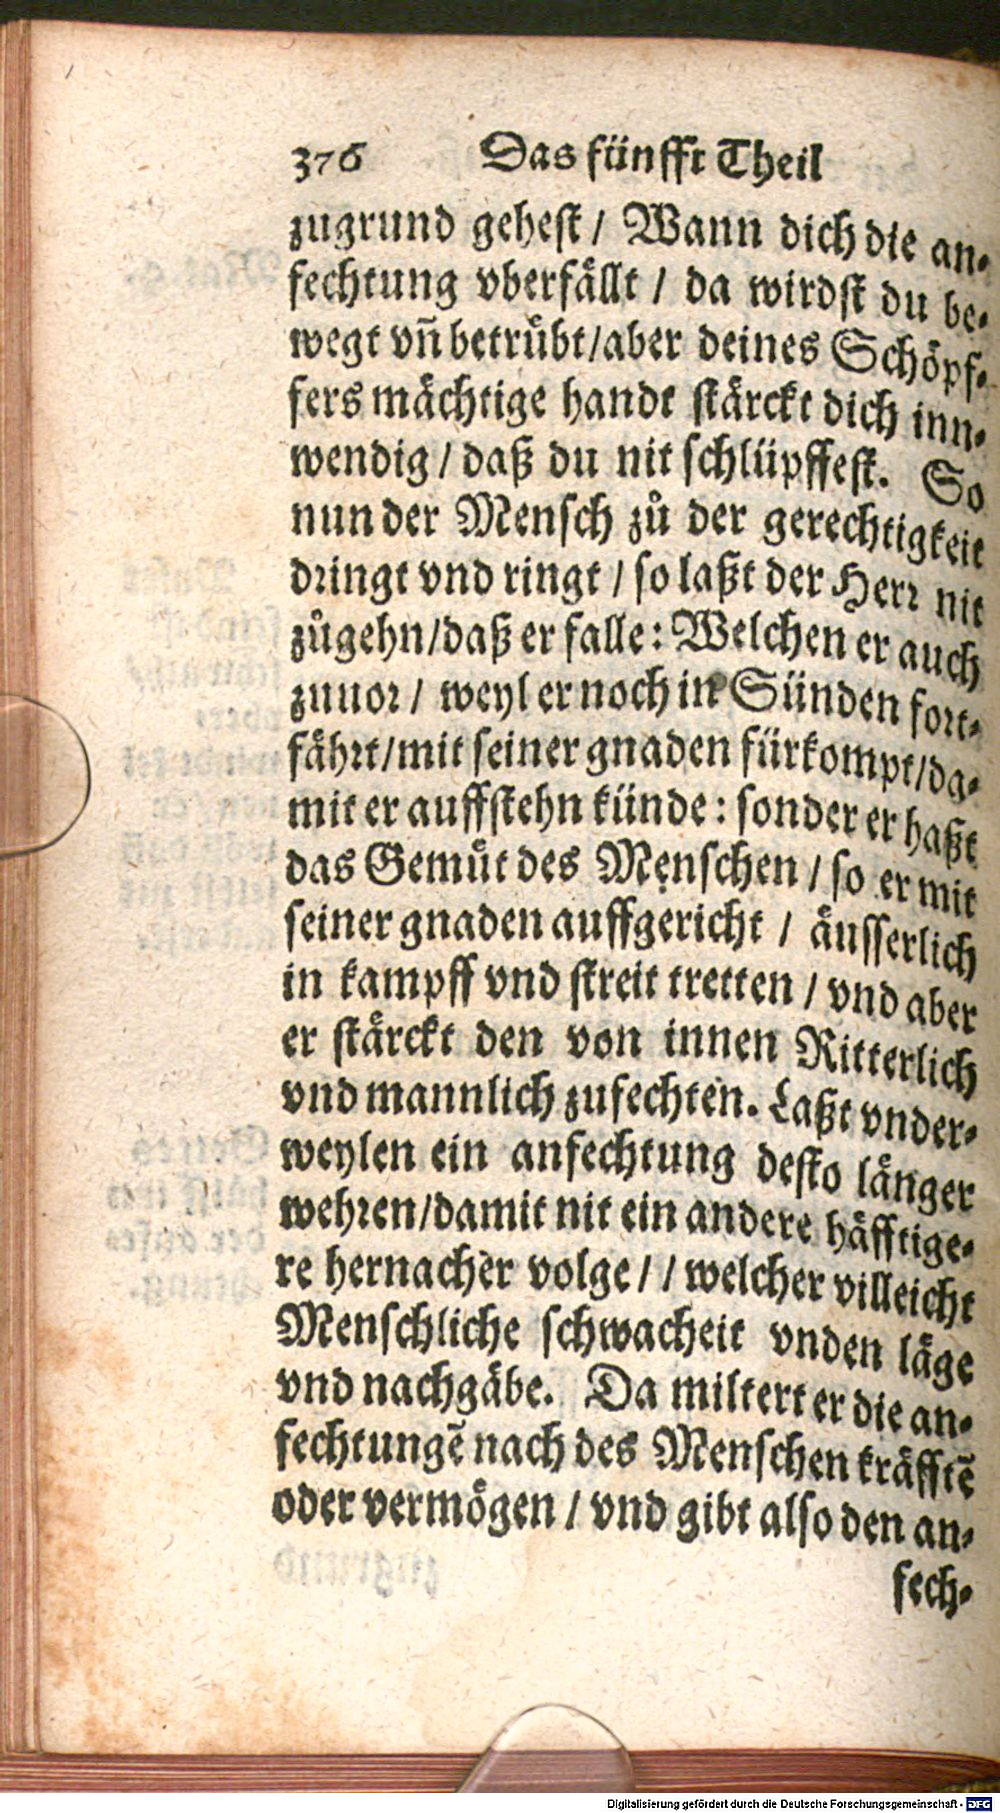 376 Das fünfft Theil
zugrund gehest / Wann dich die an⸗
fechtung vberfällt / da wirdst du be⸗
wegt vñ betrübt/aber deines Schöpf⸗
fers mächtige handt stärckt dich inn⸗
wendig / daß du nit schlüpffest. So
nun der Mensch zů der gerechtigkeit
dringt vnd ringt / so laßt der Herr nit
zůgehn/daß er falle: Welchen er auch
zuuor / weyl er noch in Sünden fort⸗
fährt/mit seiner gnaden fürkompt/da⸗
mit er auffstehn künde: sonder er haßt
das Gemüt des Menschen / so er mit
seiner gnaden auffgericht / äusserlich
in kampff vnd streit tretten / vnd aber
er stärckt den von innen Ritterlich
vnd mannlich zufechten. Laßt vnder⸗
weylen ein anfechtung desto länger
wehren/damit nit ein andere häfftige⸗
re hernacher volge/ / welcher villeicht
Menschliche schwacheit vnden läge
vnd nachgäbe. Da miltert er die an⸗
fechtungē nach des Menschen kräfftē
oder vermögen / vnd gibt also den an⸗
fech⸗
Digitalisierung gefördert durch die Deutsche Forschungsgemeinschaft - DFG